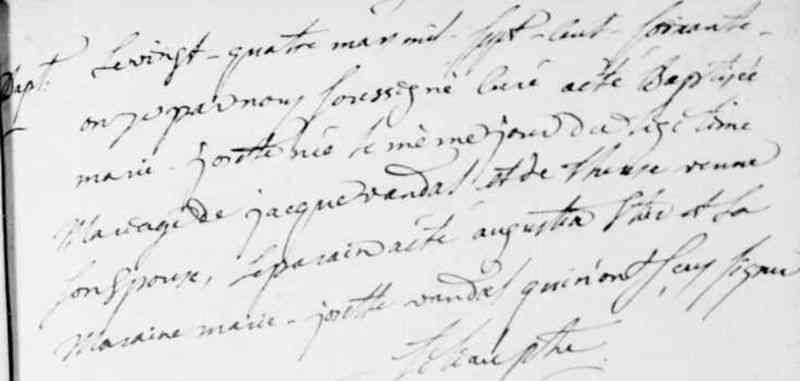 Bapt. Le vingt-quatre mars mil-sept-cent-soixante-
onze par nous soussigné Curé a eté Baptisée
marie-josette née le même jour du legitime
Mariage de jacque vandal et de therese
son Epouse, Le parain a eté augustin et La
Maraine marie-josette vandal qui n'ont sçeu signer